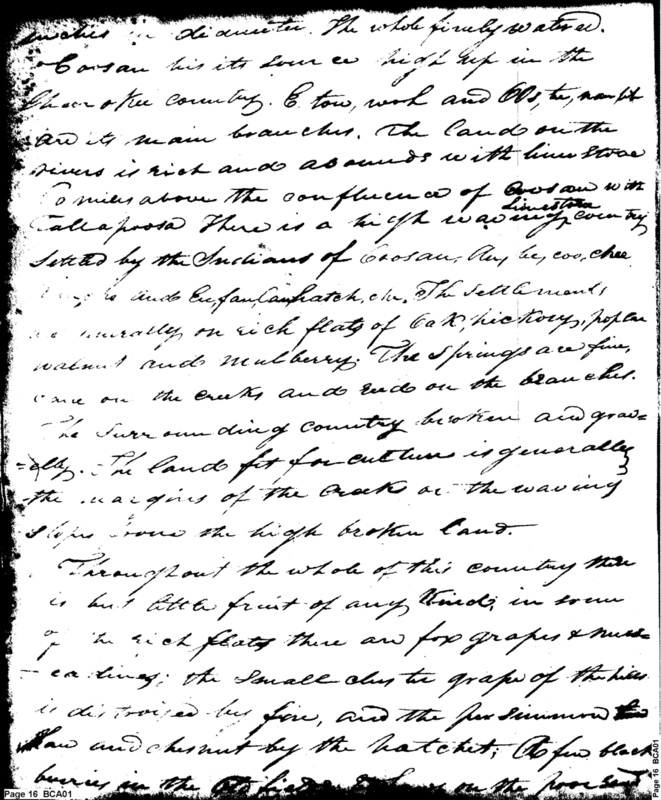 inches in diameter. The whole finely watered.
Coosau has its source high up in the
Cheerokee country. E, tow, woh and Oos, te, nau, lih
are its main branches. The land on the
rivers is rich and abounds with limestone
60 miles above the confluence of Coosau with
Tallapoosa there is a high waving Limestone country
Settled by the Indians of Coosau, Au, be, coo, chee
and Eu, fau, lau hatch, che. The settlements
generally on rich flats of Oak, hickory, poplar
walnut and mulberry. The springs are fine,
cane on the creeks and reed on the branches.
The surrounding country broken and grav=
=elly. The land fit for culture is generally
the margins of the creeks or the waving
slopes from the high broken land.
Throughout the whole of this country there
is but little fruit of any kind; in some
of the rich flats there are fox grapes & musc
=cadines; the small cluster grape of the hills
is distroyed by fire, and the persimmon
haw and chesnut by the hatchet; A few black
berries in the old fields on the poor sand
Page 16 BCA01
Page 16 BCA01